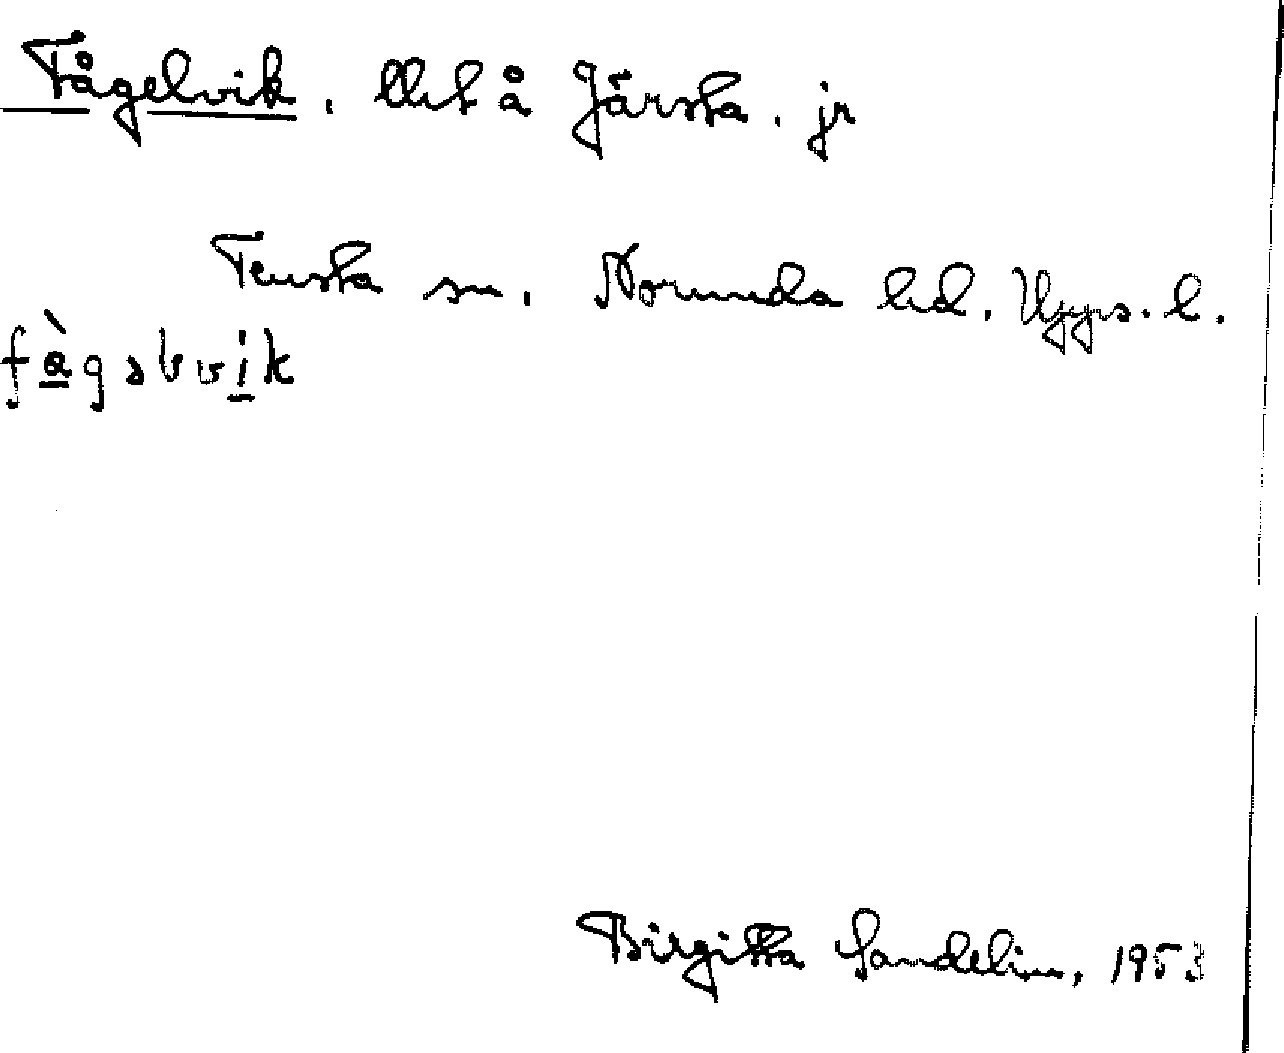 Fågelvik. Urt å Järsta. jr
Tensta sn. Norunda hd. Upps. l.
fàgəlvik
Birgitta Sandelin, 1953